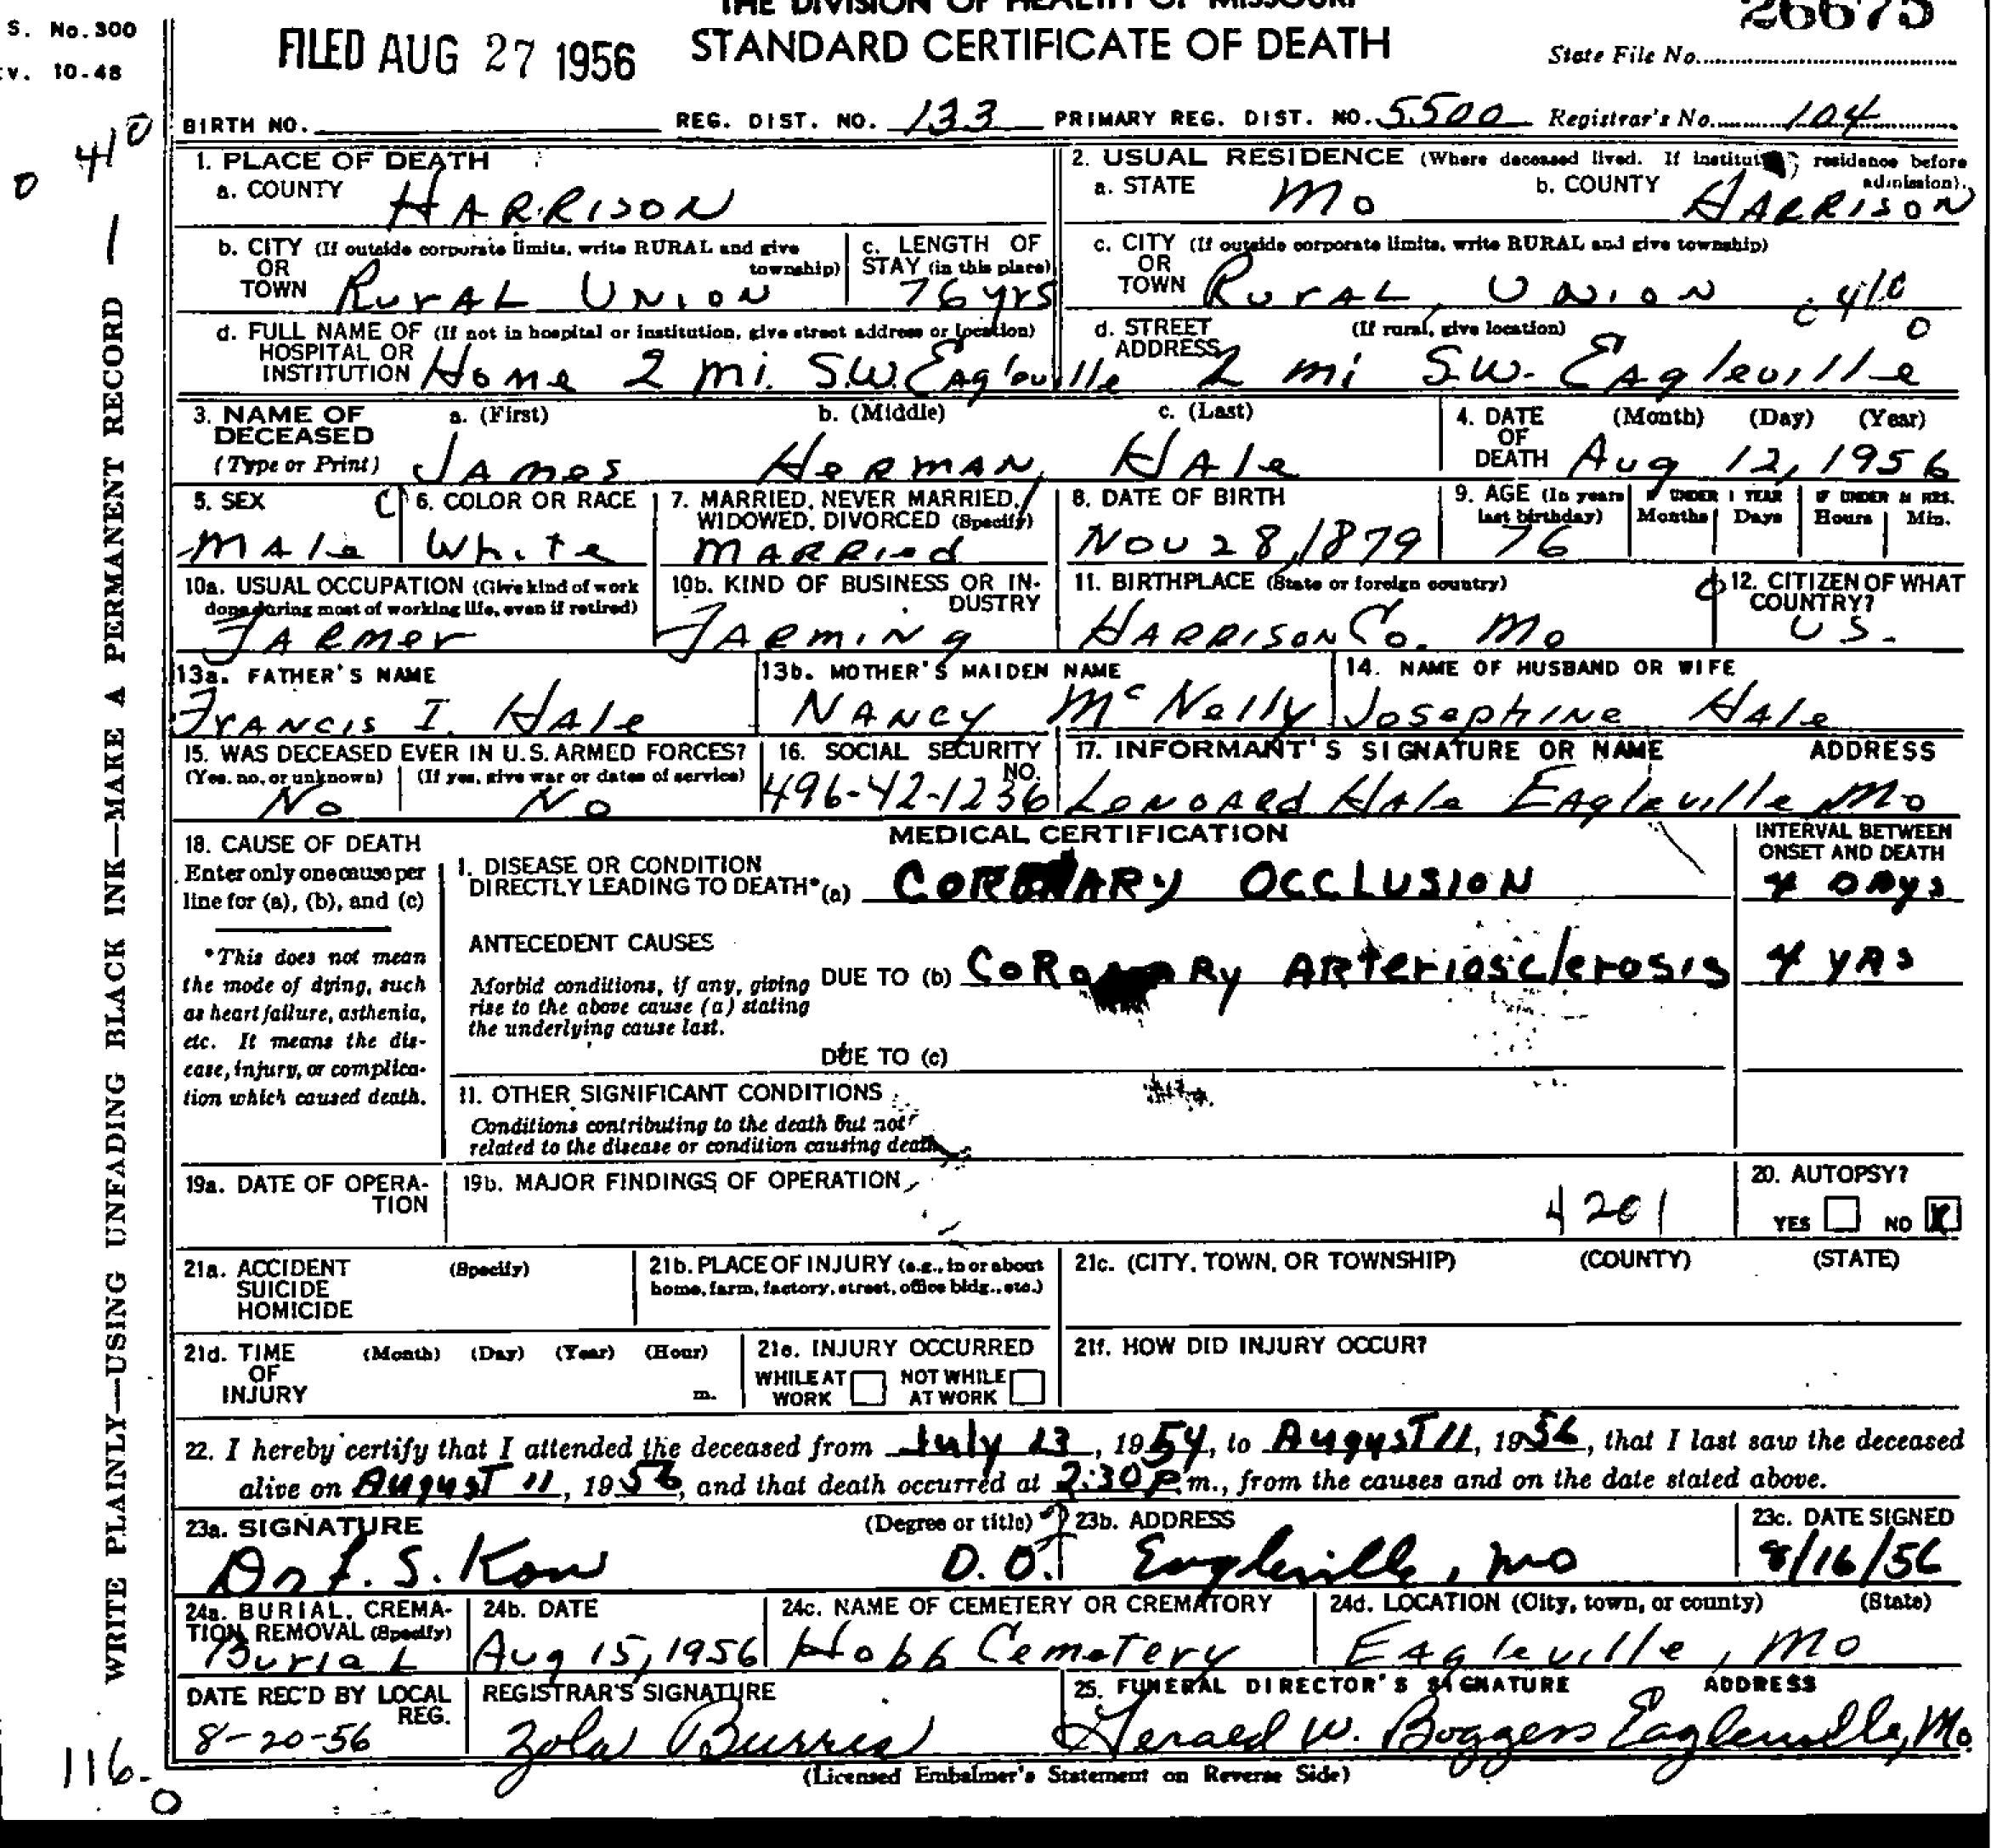 THE DIVISION OF HEALTH OF MISSOURI
26675
S. No. 300
FILED AUG 27 1956 STANDARD CERTIFICATE OF DEATH
State File No.
v. 10-48
BIRTH NO. REG. DIST. NO. 133 PRIMARY REG. DIST. NO. 5500 Registrar's No. 104
410
0
WRITE PLAINLY—USING UNFADING BLACK INK—MAKE A PERMANENT RECORD
1. PLACE OF DEATH
a. COUNTY HARRISON
2. USUAL RESIDENCE (Where deceased lived. If residence before admission).
a. STATE Mo b. COUNTY HARRISON
b. CITY (If outside corporate limits, write RURAL and give township)
OR
TOWN RurAL UNION
c. LENGTH OF
STAY (in this place)
76 yrs
c. CITY (If outside corporate limits, write RURAL and give township)
OR
TOWN RurAL, UNION
410
0
d. FULL NAME OF (If not in hospital or institution, give street address or location)
HOSPITAL OR
INSTITUTION Home 2 mi. S.W. Eagleville
d. STREET (If rural, give location)
ADDRESS 2 mi S.W. Eagleville
3. NAME OF DECEASED
(Type or Print)
a. (First) b. (Middle) c. (Last)
JAMes HeRMAN HAle
4. DATE (Month) (Day) (Year)
OF
DEATH Aug 12, 1956
5. SEX
MAle
6. COLOR OR RACE
White
7. MARRIED, NEVER MARRIED,
WIDOWED, DIVORCED (Specify)
MARRied
8. DATE OF BIRTH
Nov 28, 1879
9. AGE (In years last birthday)
76
IF UNDER 1 YEAR
Months Days
IF UNDER 24 HRS.
Hours Min.
10a. USUAL OCCUPATION (Give kind of work
done during most of working life, even if retired)
FARmer
10b. KIND OF BUSINESS OR IN-
DUSTRY
FARMING
11. BIRTHPLACE (State or foreign country)
HARRISON Co. Mo
12. CITIZEN OF WHAT
COUNTRY?
US.
13a. FATHER'S NAME
FrANCIS I. HAle
13b. MOTHER'S MAIDEN NAME
NANCY McNelly
14. NAME OF HUSBAND OR WIFE
Josephine Hale
15. WAS DECEASED EVER IN U.S. ARMED FORCES?
(Yes, no, or unknown) (If yes, give war or dates of service)
No No
16. SOCIAL SECURITY
NO.
496-42-1236
17. INFORMANT'S SIGNATURE OR NAME ADDRESS
LenoARd HAle Eagleville Mo
18. CAUSE OF DEATH
Enter only one cause per
line for (a), (b), and (c)
*This does not mean
the mode of dying, such
as heart failure, asthenia,
etc. It means the dis-
ease, injury, or complica-
tion which caused death.
MEDICAL CERTIFICATION
INTERVAL BETWEEN
ONSET AND DEATH
I. DISEASE OR CONDITION
DIRECTLY LEADING TO DEATH* (a) CORONARY OCCLUSION 4 DAYS
ANTECEDENT CAUSES
Morbid conditions, if any, giving
rise to the above cause (a) stating
the underlying cause last.
DUE TO (b) CORONARY ARteriosclerosis 4 YRS
DUE TO (c)
II. OTHER SIGNIFICANT CONDITIONS
Conditions contributing to the death but not
related to the disease or condition causing death.
19a. DATE OF OPERA-
TION
19b. MAJOR FINDINGS OF OPERATION
4201
20. AUTOPSY?
YES NO X
21a. ACCIDENT (Specify)
SUICIDE
HOMICIDE
21b. PLACE OF INJURY (e.g., in or about
home, farm, factory, street, office bldg., etc.)
21c. (CITY, TOWN, OR TOWNSHIP) (COUNTY) (STATE)
21d. TIME (Month) (Day) (Year) (Hour)
OF
INJURY m.
21e. INJURY OCCURRED
WHILE AT WORK NOT WHILE AT WORK
21f. HOW DID INJURY OCCUR?
22. I hereby certify that I attended the deceased from July 13, 1954, to August 11, 1956, that I last saw the deceased
alive on August 11, 1956, and that death occurred at 2:30 P.m., from the causes and on the date stated above.
23a. SIGNATURE (Degree or title)
S. D.O.
23b. ADDRESS
Eagleville, Mo
23c. DATE SIGNED
8/16/56
24a. BURIAL, CREMA-
TION, REMOVAL (Specify)
BuriaL
24b. DATE
Aug 15, 1956
24c. NAME OF CEMETERY OR CREMATORY
Hobb Cemetery
24d. LOCATION (City, town, or county) (State)
Eagleville, Mo
DATE REC'D BY LOCAL
REG.
8-20-56
REGISTRAR'S SIGNATURE
Zola Burris
25. FUNERAL DIRECTOR'S SIGNATURE ADDRESS
Gerald W. Boggess Eagleville, Mo.
(Licensed Embalmer's Statement on Reverse Side)
116.
0